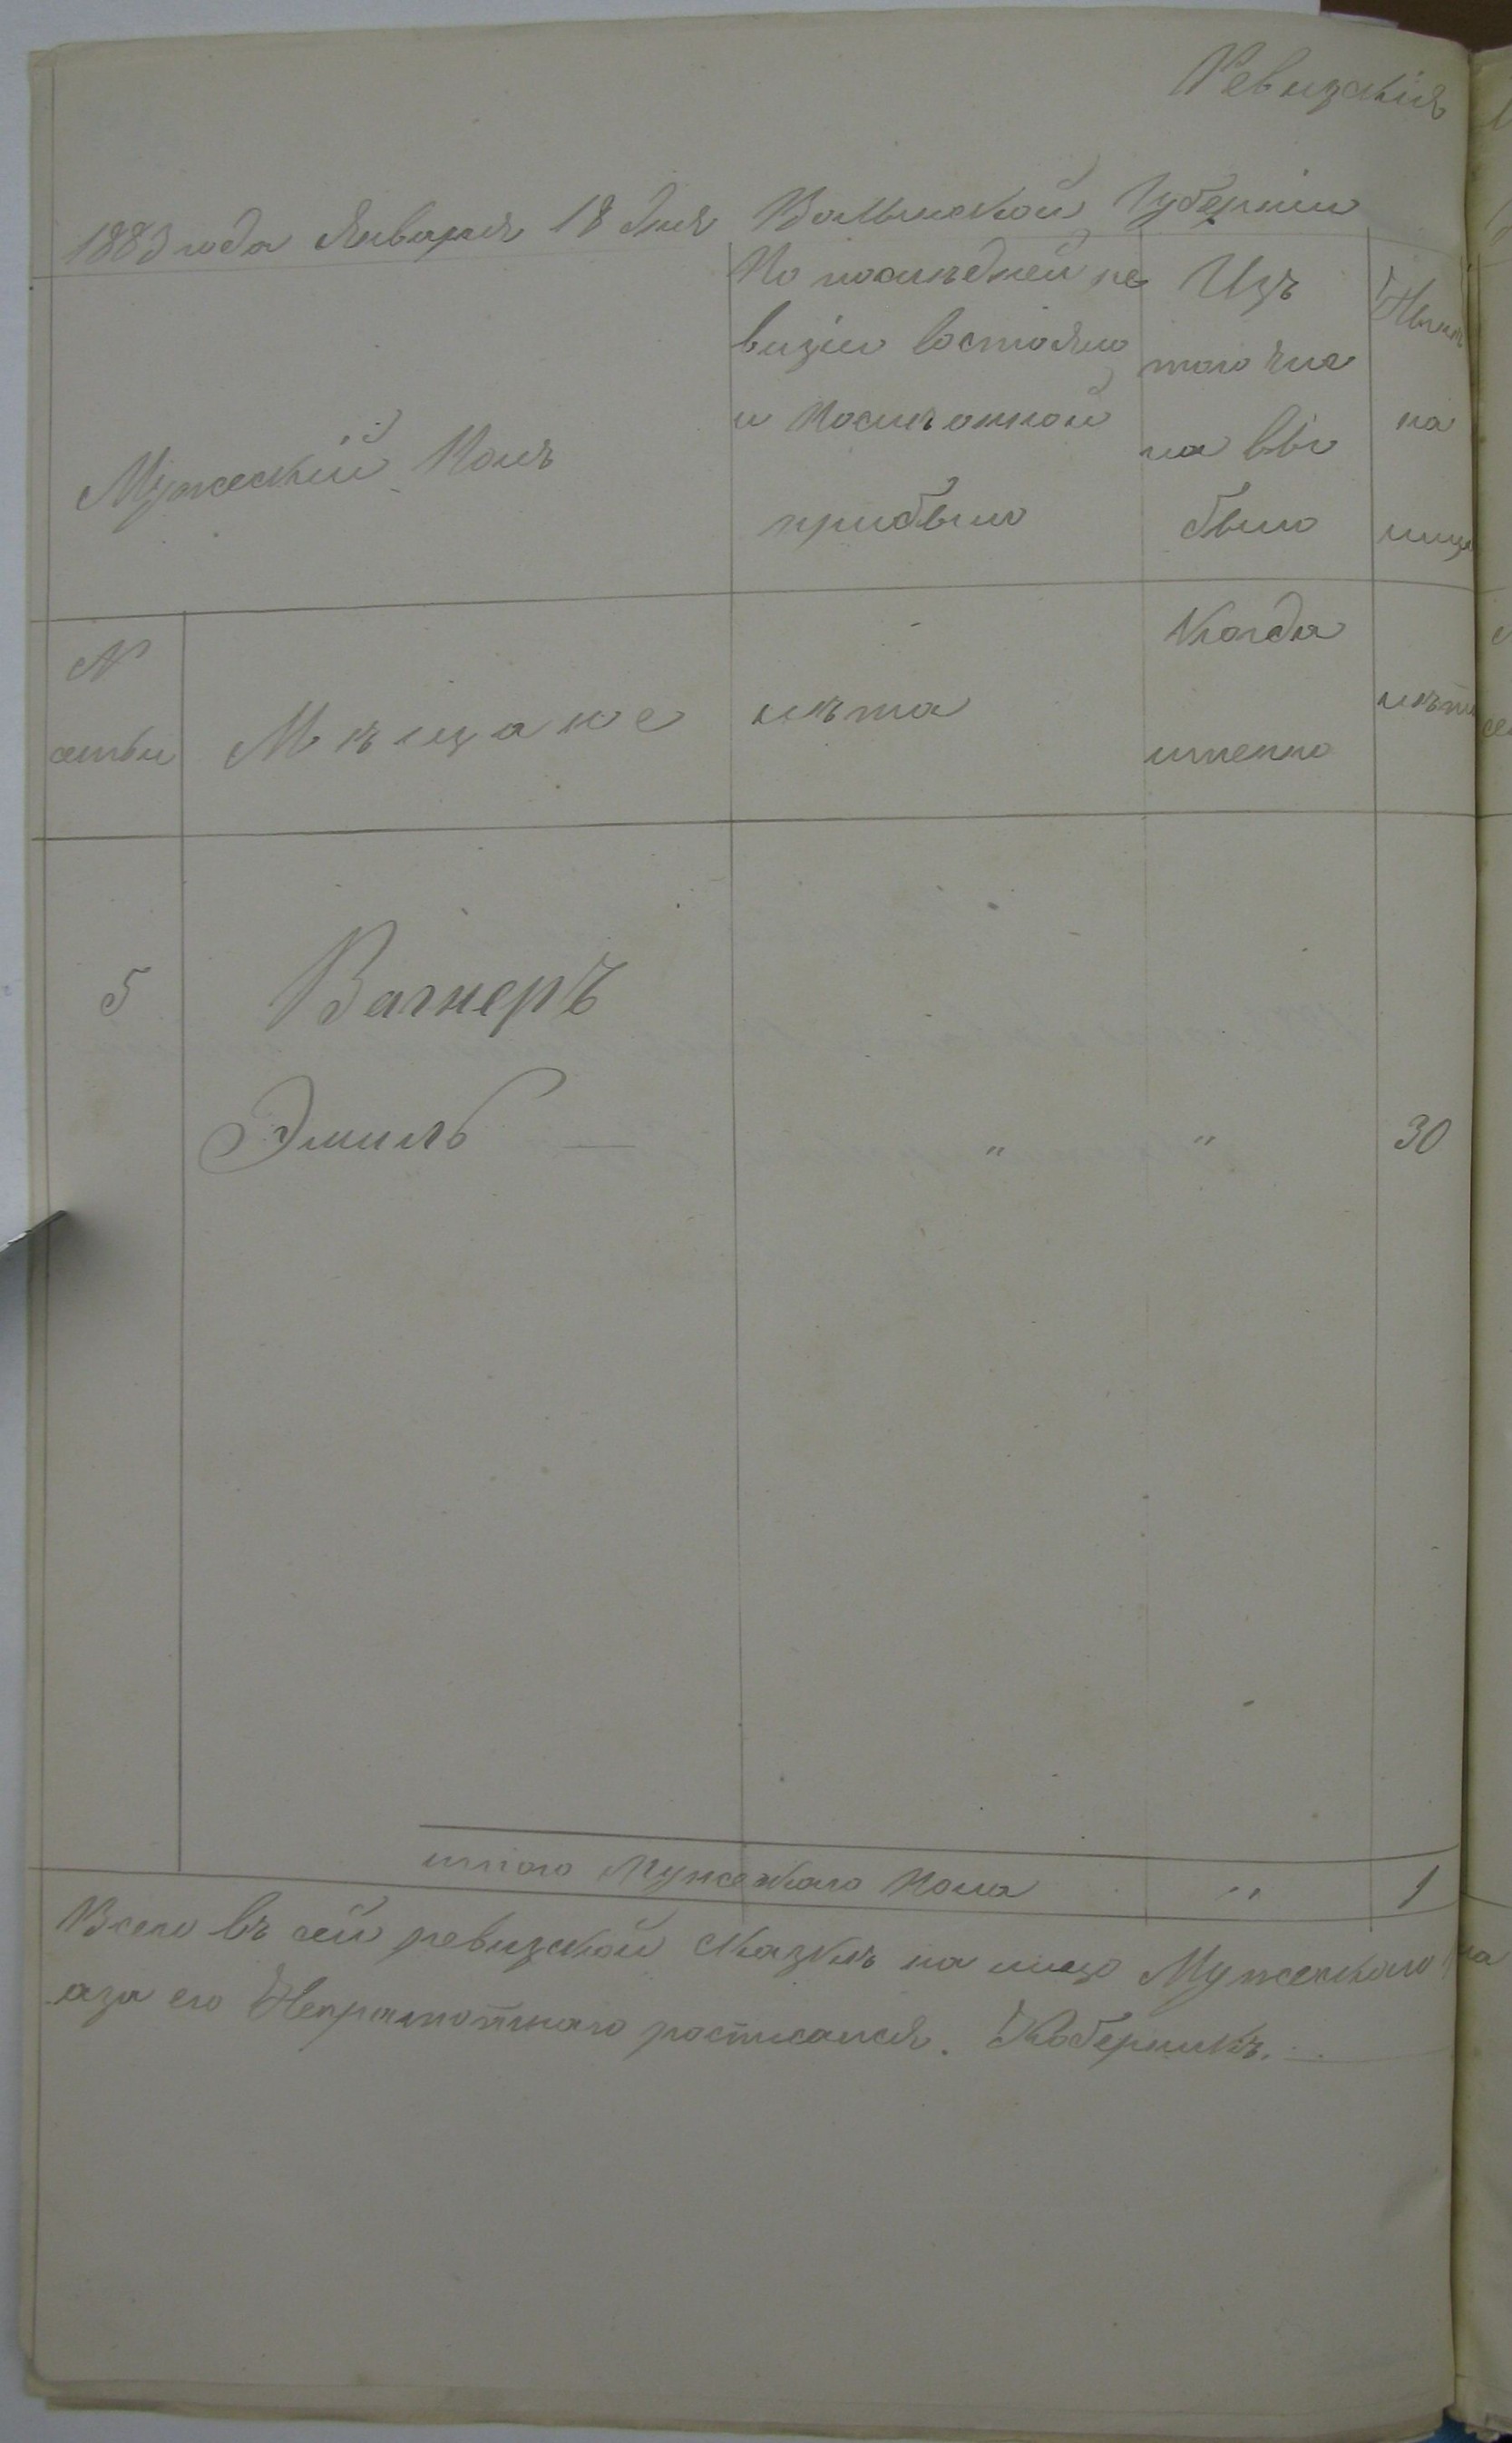 Ревизскія
1883 года Января 18 дня Волынской Губерніи
Мужескій Полъ
По послѣдней ре
визіи состояло
и Послѣ оной
прибыло
Изъ
того чис
ла вы
было
Нынѣ
на
лицо
№
семьи
Мѣщане
лѣта
Когда
именно
лѣта
5
Вагнеръ
Эмиль — " " 30
итого Мужескаго Пола " 1
Всего въ сей ревизской сказкѣ на лицо Мужескаго
аза его Неграмотнаго росписался.